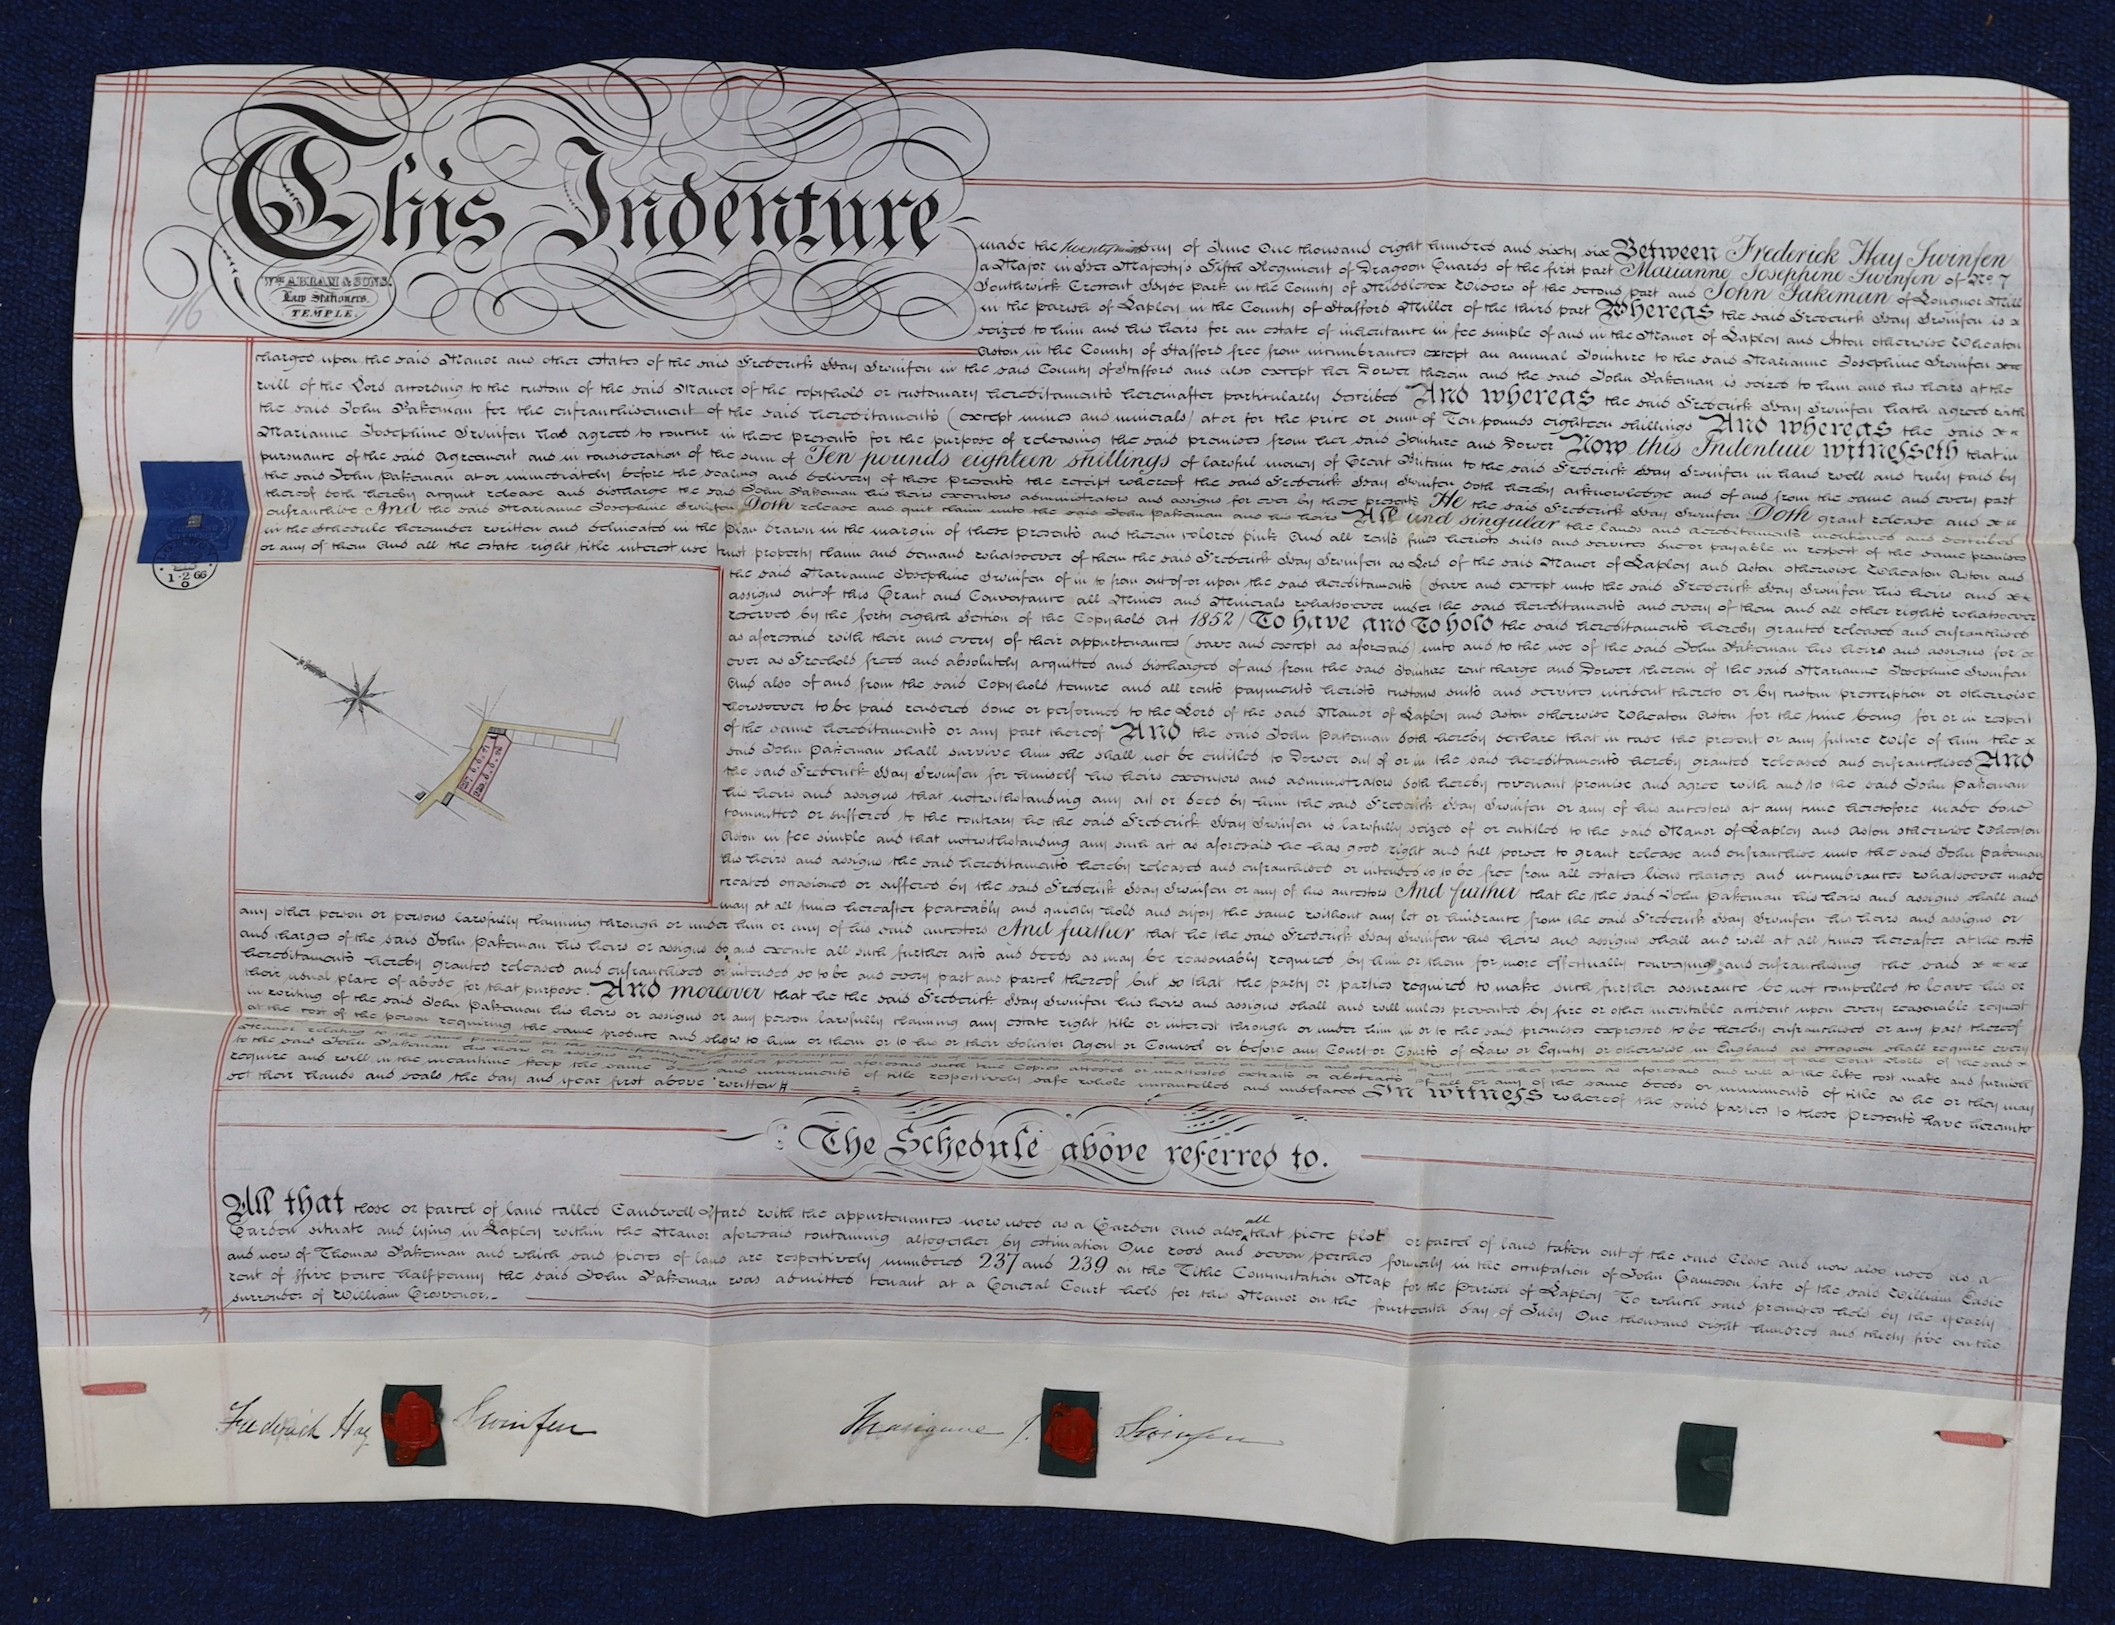 This Indenture
Wm ABRAM & SONS.
Law Stationers.
TEMPLE.
made the day of June One thousand eight hundred and sixty six Between Frederick Hay Swinfen
a Major in Her Majesty's Fifth Regiment of Dragoon Guards of the first part Marianne Josephine Swinfen of No. 7
Southwick Crescent Hyde Park in the County of Middlesex Widow of the second part and John Pakeman of Longnor Mill
in the parish of Lapley in the County of Stafford Miller of the third part Whereas the said Frederick Hay Swinfen is
seized to him and his heirs for an estate of inheritance in fee simple of and in the Manor of Lapley and Aston otherwise Wheaton
Aston in the County of Stafford free from incumbrances except an annual Jointure to the said Marianne Josephine Swinfen
charged upon the said Manor and other estates of the said Frederick Hay Swinfen in the said County of Stafford and also except her Dower therein and the said John Pakeman is seized to him and his heirs at the
will of the Lord according to the custom of the said Manor of the copyhold or customary hereditaments hereinafter particularly described And whereas the said Frederick Hay Swinfen hath agreed with
the said John Pakeman for the enfranchisement of the said hereditaments (except mines and minerals) at or for the price or sum of Ten pounds eighteen shillings And whereas the said
Marianne Josephine Swinfen has agreed to concur in these presents for the purpose of releasing the said premises from her said Jointure and Dower Now this Indenture witnesseth that in
pursuance of the said Agreement and in consideration of the sum of Ten pounds eighteen shillings of lawful money of Great Britain to the said Frederick Hay Swinfen in hand well and truly paid by
the said John Pakeman at or immediately before the sealing and delivery of these presents the receipt whereof the said Frederick Hay Swinfen doth hereby acknowledge and of and from the same and every part
thereof doth hereby acquit release and discharge the said John Pakeman his heirs executors administrators and assigns for ever by these presents He the said Frederick Hay Swinfen Doth grant release and
enfranchise And the said Marianne Josephine Swinfen Doth release and quit claim unto the said John Pakeman and his heirs All and singular the lands and hereditaments mentioned and described
in the Schedule hereunder written and delineated in the Plan drawn in the margin of these presents and therein colored pink And all rents fines heriots suits and services due or payable in respect of the same premises
or any of them And all the estate right title interest use trust property claim and demand whatsoever of them the said Frederick Hay Swinfen as Lord of the said Manor of Lapley and Aston otherwise Wheaton Aston and
1·2·66
the said Marianne Josephine Swinfen of in to from out of or upon the said hereditaments (save and except unto the said Frederick Hay Swinfen his heirs and
assigns out of this Grant and Conveyance all Mines and Minerals whatsoever under the said hereditaments and every of them and all other rights whatsoever
reserved by the forty eighth Section of the Copyhold Act 1852) To have and to hold the said hereditaments hereby granted released and enfranchised
as aforesaid with their and every of their appurtenances (save and except as aforesaid) unto and to the use of the said John Pakeman his heirs and assigns for
ever as Freehold freed and absolutely acquitted and discharged of and from the said Jointure rent charge and Dower therein of the said Marianne Josephine Swinfen
And also of and from the said Copyhold tenure and all rents payments heriots customs suits and services incident thereto or by custom prescription or otherwise
howsoever to be paid rendered done or performed to the Lord of the said Manor of Lapley and Aston otherwise Wheaton Aston for the time being for or in respect
of the same hereditaments or any part thereof And the said John Pakeman doth hereby declare that in case the present or any future Wife of him the
said John Pakeman shall survive him she shall not be entitled to Dower out of or in the said hereditaments hereby granted released and enfranchised And
the said Frederick Hay Swinfen for himself his heirs executors and administrators doth hereby covenant promise and agree with and to the said John Pakeman
his heirs and assigns that notwithstanding any act or deed by him the said Frederick Hay Swinfen or any of his ancestors at any time heretofore made done
committed or suffered to the contrary he the said Frederick Hay Swinfen is lawfully seized of or entitled to the said Manor of Lapley and Aston otherwise Wheaton
Aston in fee simple and that notwithstanding any such act as aforesaid he has good right and full power to grant release and enfranchise unto the said John Pakeman
his heirs and assigns the said hereditaments hereby released and enfranchised or intended so to be free from all estates liens charges and incumbrances whatsoever made
created occasioned or suffered by the said Frederick Hay Swinfen or any of his ancestors And further that he the said John Pakeman his heirs and assigns shall and
may at all times hereafter peaceably and quietly hold and enjoy the same without any let or hindrance from the said Frederick Hay Swinfen his heirs and assigns or
any other person or persons lawfully claiming through or under him or any of his said ancestors And further that he the said Frederick Hay Swinfen his heirs and assigns shall and will at all times hereafter at the costs
and charges of the said John Pakeman his heirs or assigns do and execute all such further acts and deeds as may be reasonably required by him or them for more effectually conveying and enfranchising the said
hereditaments hereby granted released and enfranchised or intended so to be and every part and parcel thereof but so that the party or parties required to make such further assurance be not compelled to leave his or
their usual place of abode for that purpose. And moreover that he the said Frederick Hay Swinfen his heirs and assigns shall and will unless prevented by fire or other inevitable accident upon every reasonable request
in writing of the said John Pakeman his heirs or assigns or any person lawfully claiming any estate right title or interest through or under him in or to the said premises expressed to be hereby enfranchised or any part thereof
at the cost of the person requiring the same produce and show to him or them or to his or their Solicitor Agent or Counsel or before any Court or Courts of Law or Equity or otherwise in England as occasion shall require every
to the said John Pakeman his heirs or assigns or such other person as aforesaid such true Copies attested or unattested extracts or abstracts of all or any of the same deeds or muniments of title as he or they may
require and will in the meantime keep the same deeds and muniments of title respectively safe whole uncancelled and undefaced In witness whereof the said parties to these Presents have hereunto
set their hands and seals the day and year first above written
The Schedule above referred to.
All that close or parcel of land called Yard with the appurtenances now used as a Garden And also all that piece plot or parcel of land taken out of the said Close and now also used as a
Garden situate and lying in Lapley within the Manor aforesaid containing altogether by estimation One rood and seven perches formerly in the occupation of John Cameson late of the said William
and now of Thomas Pakeman and which said pieces of land are respectively numbered 237 and 239 on the Tithe Commutation Map for the Parish of Lapley To which said premises held by the yearly
rent of ffive pence halfpenny the said John Pakeman was admitted tenant at a General Court held for this Manor on the fourteenth day of July One thousand eight hundred and thirty five on the
surrender of William Grosvenor.
Frederick Hay Swinfen
Marianne J. Swinfen